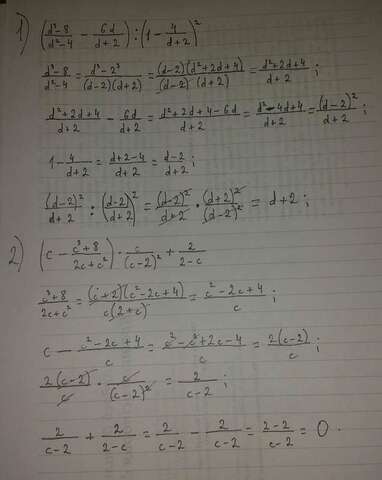 1) ((d³-8)/(d²-4) - 6d/(d+2)) : (1 - 4/(d+2))²
(d³-8)/(d²-4) = (d³-2³)/((d-2)(d+2)) = ((d-2)(d²+2d+4))/((d-2)(d+2)) = (d²+2d+4)/(d+2);
(d²+2d+4)/(d+2) - 6d/(d+2) = (d²+2d+4-6d)/(d+2) = (d²-4d+4)/(d+2) = (d-2)²/(d+2);
1 - 4/(d+2) = (d+2-4)/(d+2) = (d-2)/(d+2);
(d-2)²/(d+2) : ((d-2)/(d+2))² = (d-2)²/(d+2) · (d+2)²/(d-2)² = d+2;
2) (c - (c³+8)/(2c+c²)) · c/(c-2)² + 2/(2-c)
(c³+8)/(2c+c²) = ((c+2)(c²-2c+4))/(c(2+c)) = (c²-2c+4)/c;
c - (c²-2c+4)/c = (c²-c²+2c-4)/c = 2(c-2)/c;
2(c-2)/c · c/(c-2)² = 2/(c-2);
2/(c-2) + 2/(2-c) = 2/(c-2) - 2/(c-2) = (2-2)/(c-2) = 0.